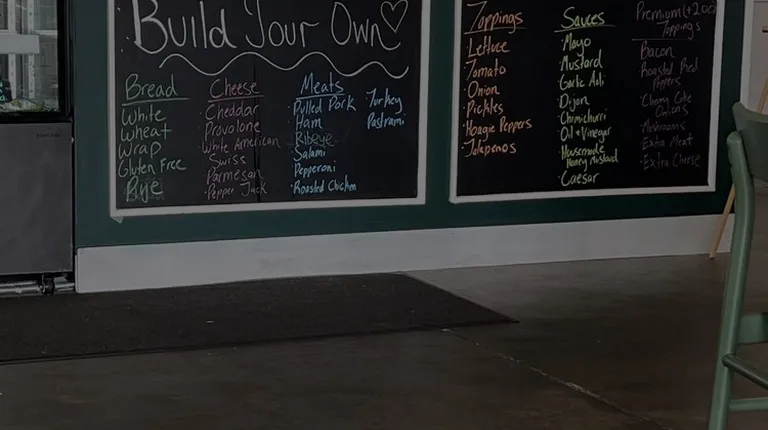 Build Your Own
Bread
White
Wheat
Wrap
Gluten Free
Rye
Cheese
· Cheddar
· Provolone
· White American
· Swiss
· Parmesan
· Pepper Jack
Meats
· Pulled Pork
· Ham
· Ribeye
· Salami
· Pepperoni
· Roasted Chicken
Turkey
Pastrami
Toppings
· Lettuce
· Tomato
· Onion
· Pickles
· Hoagie Peppers
· Jalapenos
Sauces
· Mayo
· Mustard
· Garlic Aoli
· Dijon
· Chimichurri
· Oil + Vinegar
· Housemade
Honey Mustard
· Caesar
Premium
Topping's
· Bacon
· Roasted Red
Peppers
Onions
· Mushrooms
· Extra Meat
· Extra Cheese